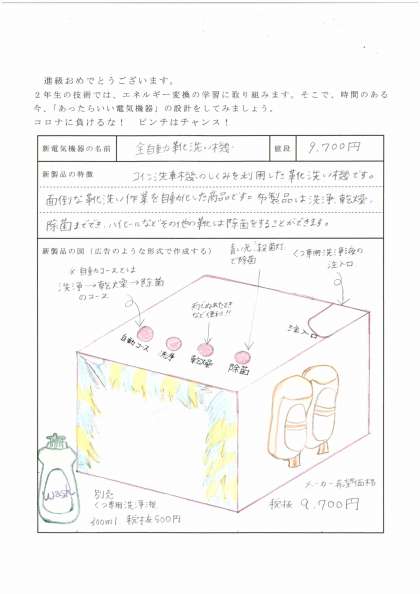 進級おめでとうございます。
２年生の技術では、エネルギー変換の学習に取り組みます。そこで、時間のある
今、「あったらいい電気機器」の設計をしてみましょう。
コロナに負けるな！　ピンチはチャンス！
新電気機器の名前　全自動靴洗い機　値段　9,700円
新製品の特徴　コイン洗車機のしくみを利用した靴洗い機です。
面倒な靴洗い作業を自動化した商品です。布製品は洗浄、乾燥、
除菌まででき、ハイヒールなどその他の靴は除菌をすることができます。
新製品の図（広告のような形式で作成する）
※自動コースとは
洗浄→乾燥→除菌
のコース
青い光殺菌灯
で除菌
くつ専用洗浄液の
注入口
自動コース
洗浄
乾燥
除菌
注入口
wash
別売
くつ専用洗浄液
300ml 税抜500円
メーカー希望価格
税抜 9,700円